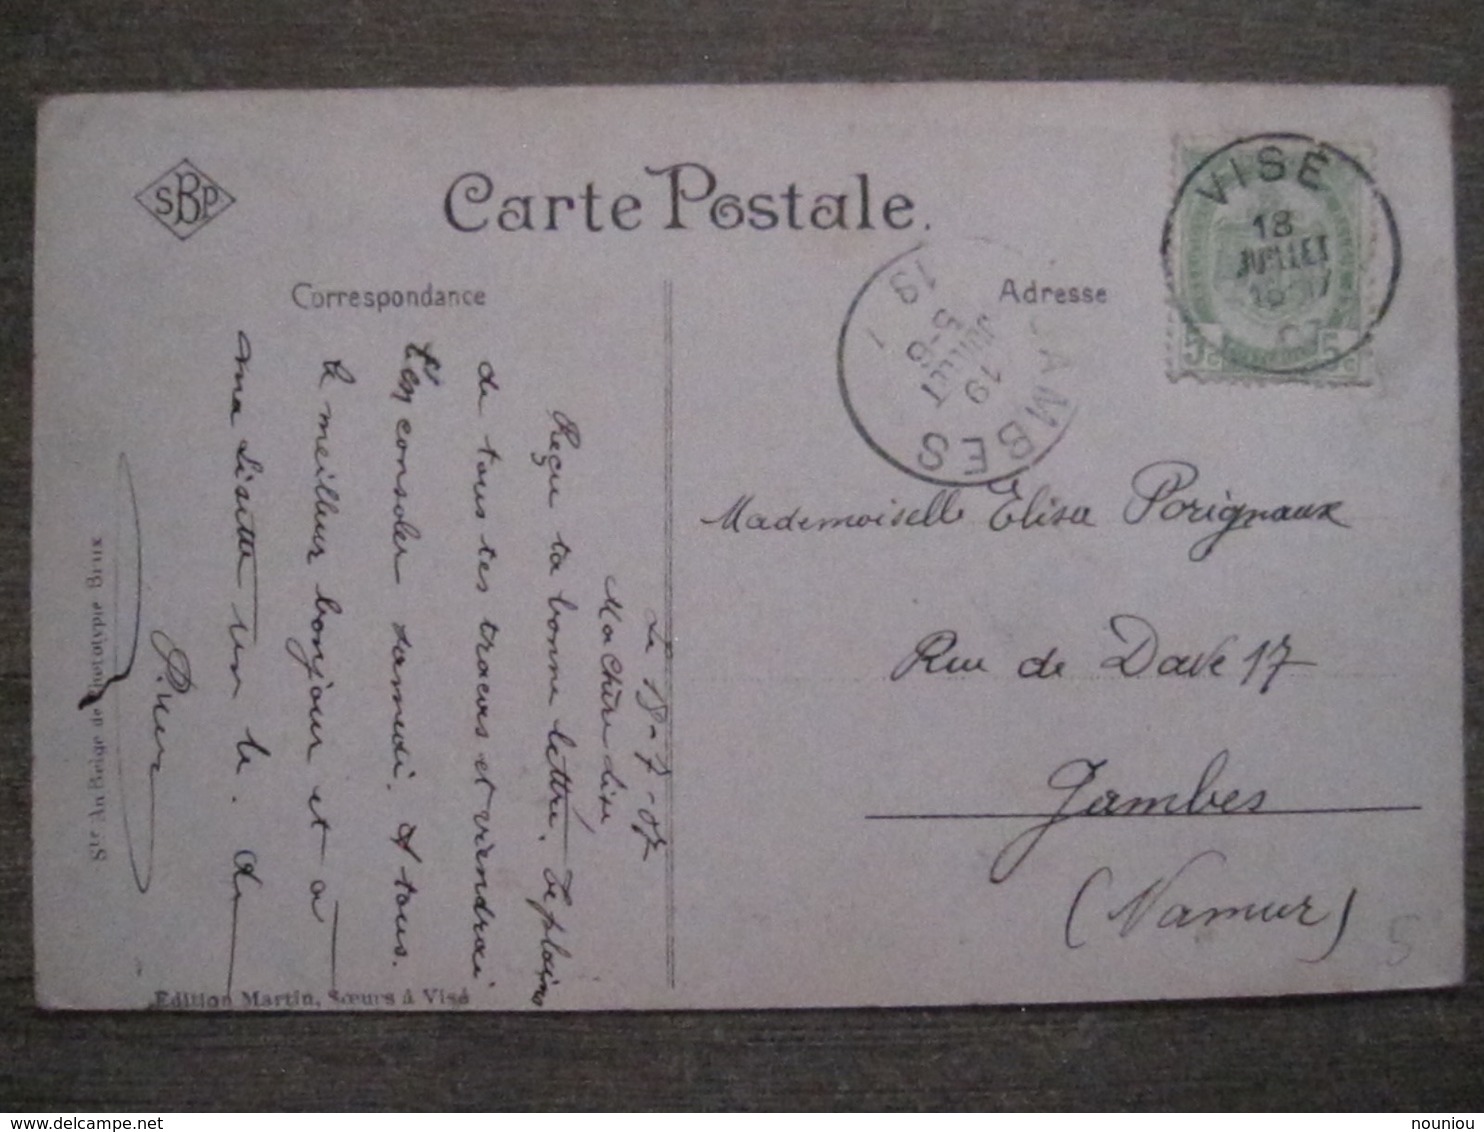 SBP
Carte Postale.
Correspondance
Adresse
VISÉ
18
JUILLET
07
5 5
JAMBES
19
JUILLET
5-6
19
Le 18-7-07
Ma Chère Lise
Reçu ta bonne lettre. Te plains
de tous tes tracas et viendrai
t'en consoler samedi. A tous
le meilleur bonjour et à
ma Lisette un b. de
Mademoiselle Elisa Porignaux
Rue de Dave 17
Jambes
(Namur)
5
Ste An Belge de Phototypie Brux
Edition Martin, Sœurs à Visé
nouniou